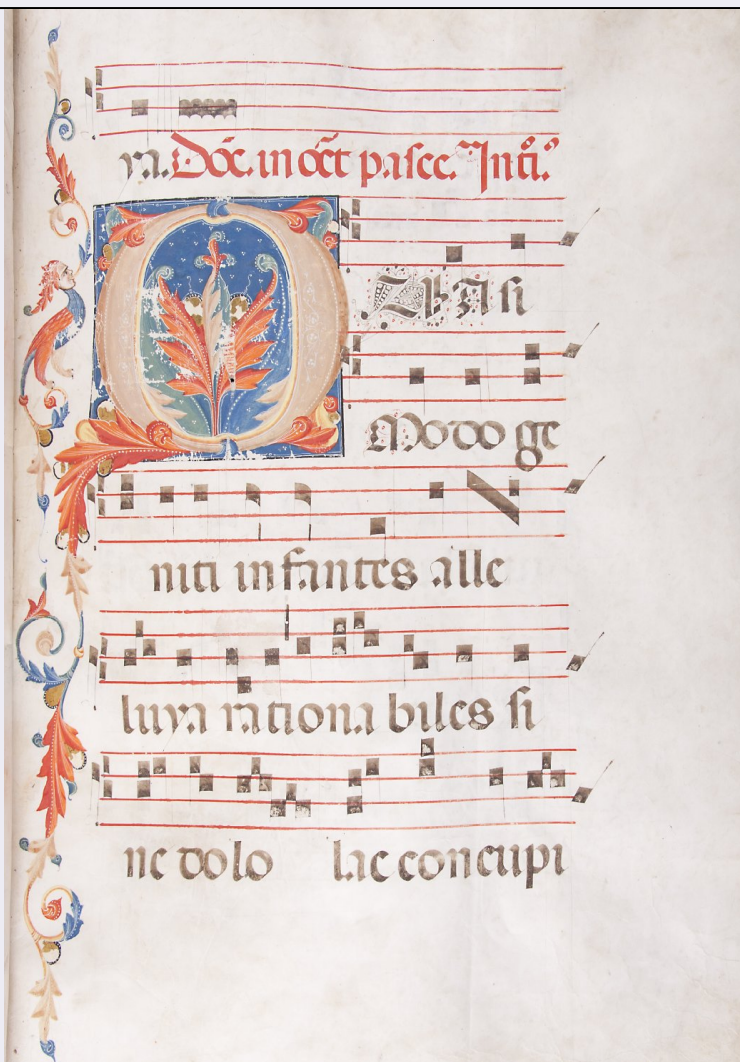 ya. Dōc. in oct̄ pasce. Int̄i.
QUASi
Modo ge
niti infantes alle
luya rationa biles si
ne dolo lac concupi